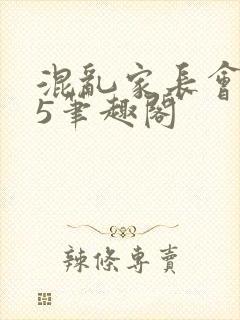 混亂家長會
5筆趣閣
辣條專賣